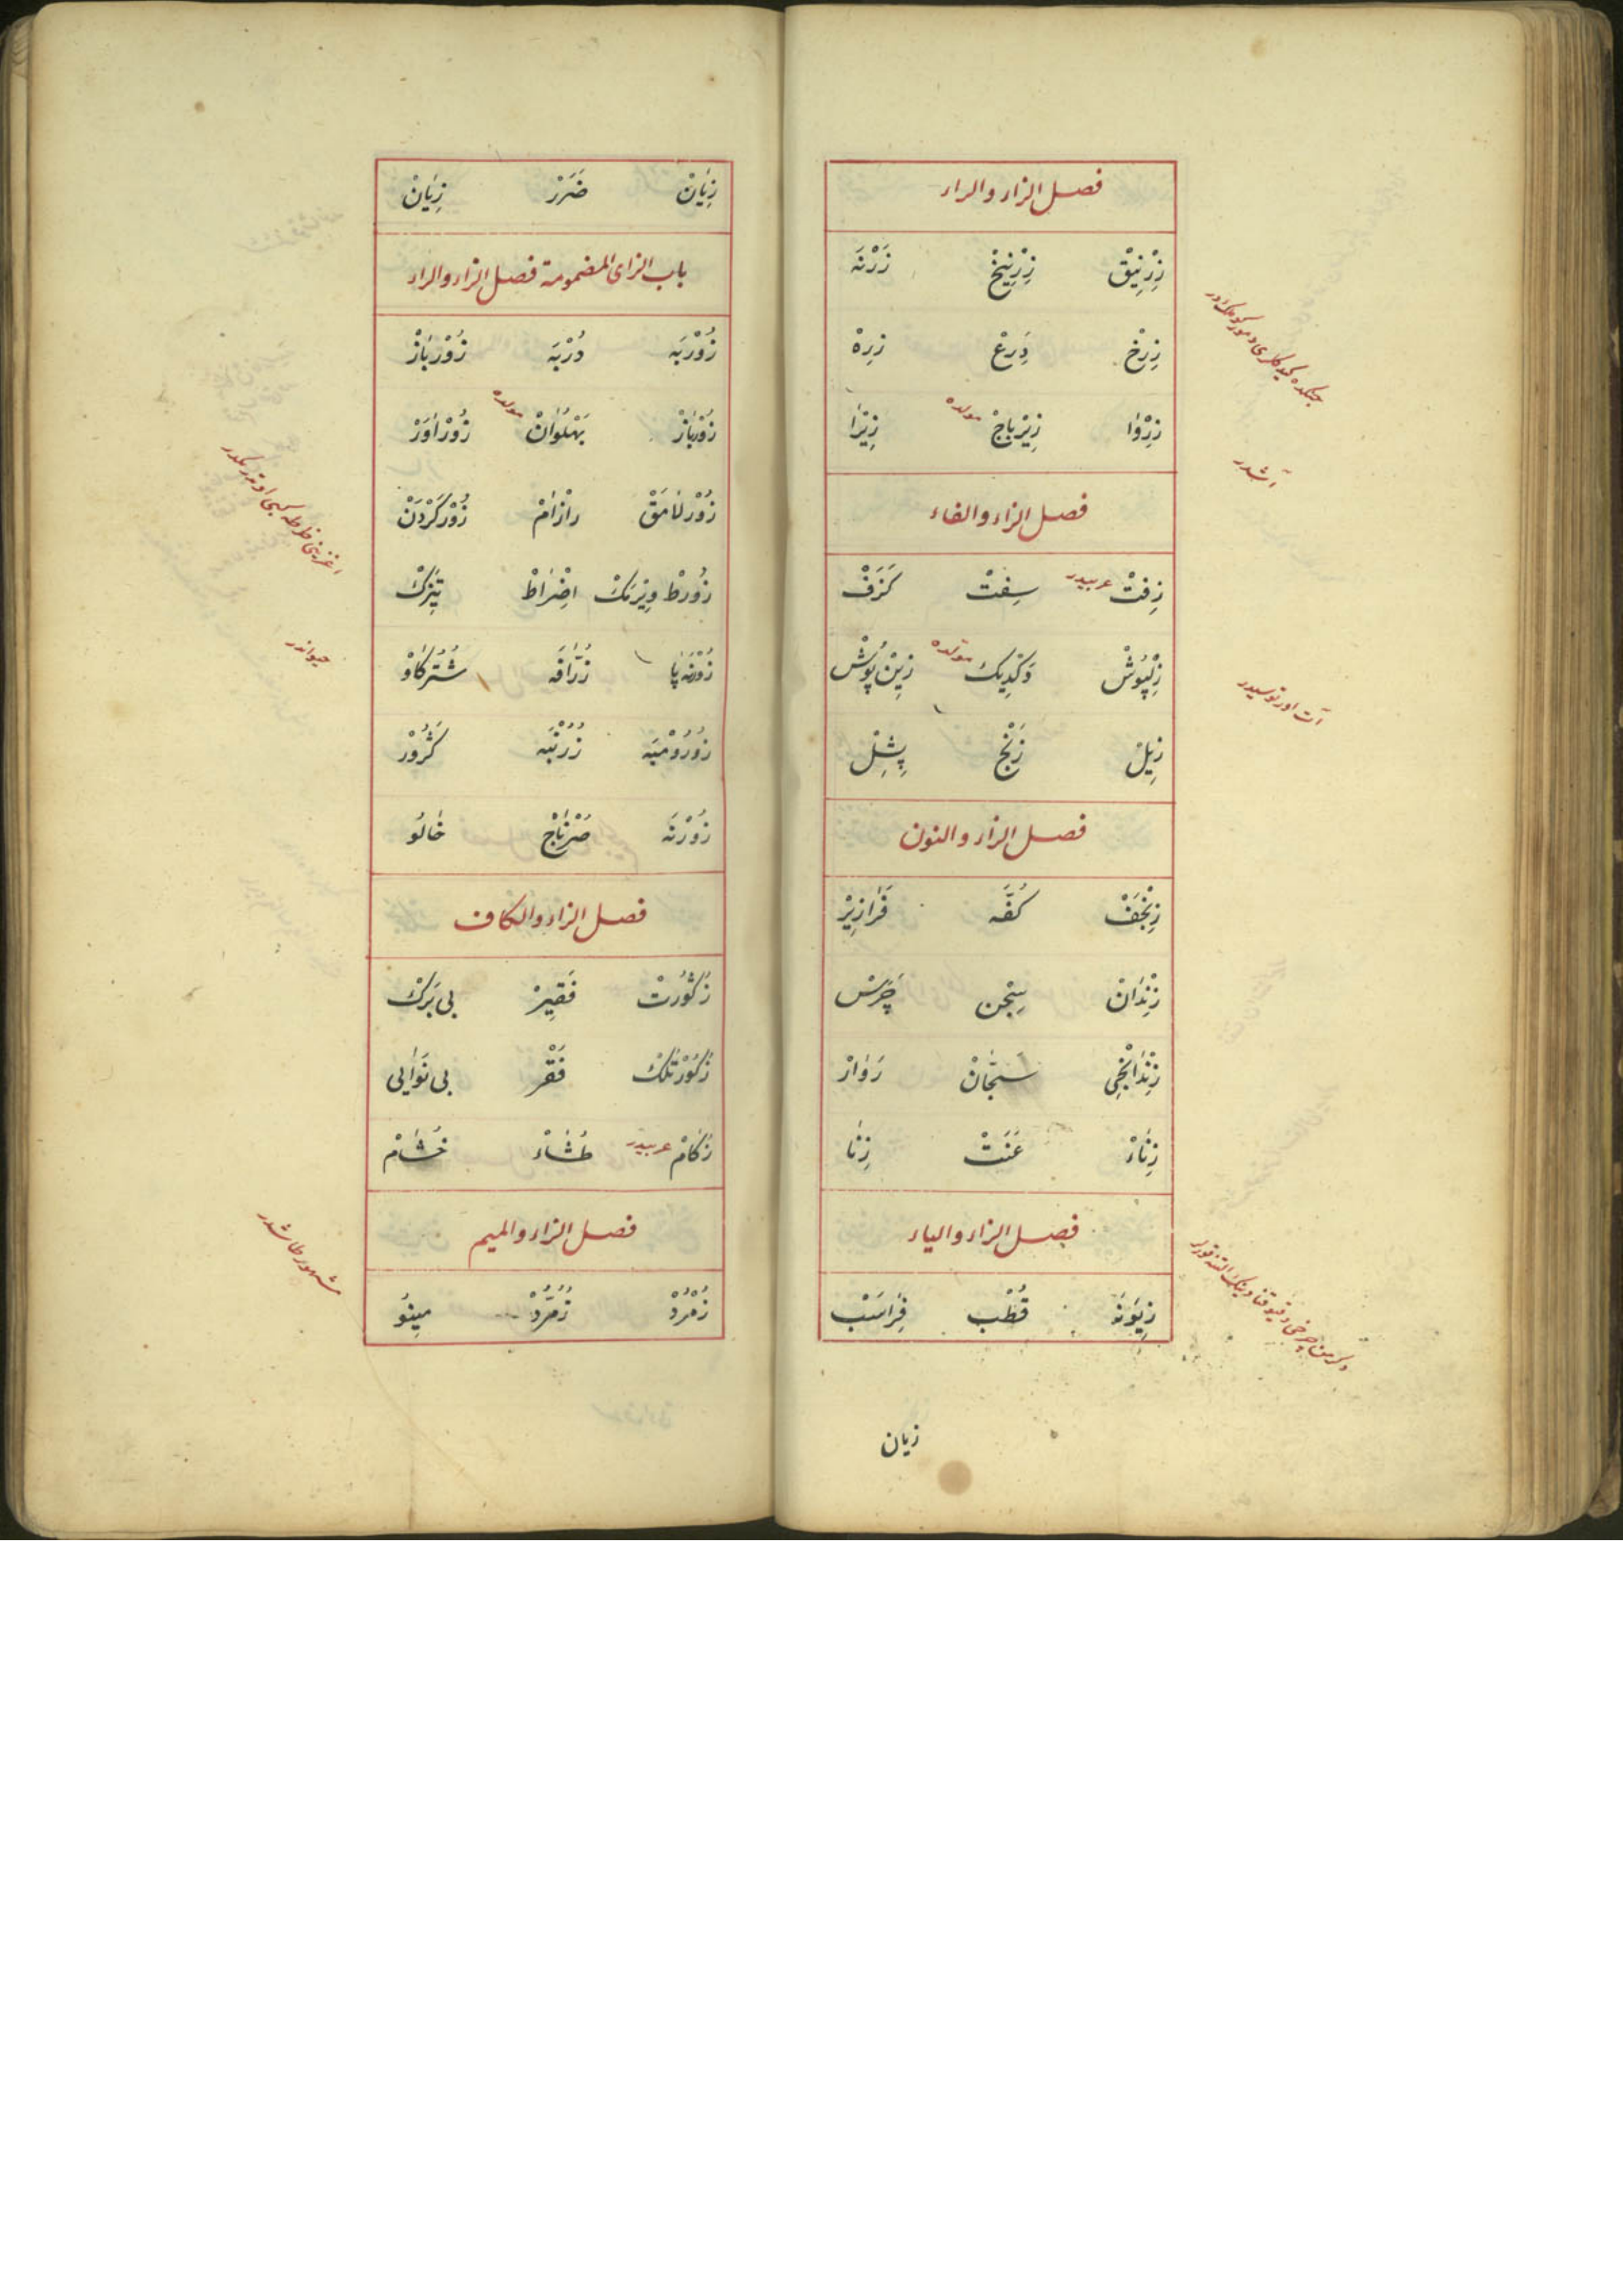 فصل الزاء والراء
زِرْنِيْقْ زِرْنِيخْ زَرْنَه
زِرِخْ دِرعْ زِرِهْ
زِرْوَا زِيْرْبَاجْ مولده زِيْرَا
فصل الزاء والفاء
زِفتْ عربيدر سِفتْ كَزَفْ
زِلْپُوشْ وَكْدِيك مولده زِيْنْ پُوشْ
زِيلْ زَنْجْ پِشِلْ
فصل الزاء والنون
زِنْجَفْ كُفَّه فَرَازِيْرْ
زِنْدَانْ سِجْن چَرَسْ
زِنْدَانْجِى سَجَّانْ زَوَارْ
زِنَاءْ عَنَتْ زِنَا
فصل الزاء والياء
زِيوَنَه قُطْب فَرَاسَبْ
آشدر
آت اورتوسيدر
زيان
زِيَانْ ضَرَرْ زِيَانْ
باب الزاى المضمومة فصل الزاء والراء
زُوْرْبَه دُرْبَه زُوْرْبَازْ
زُوْرْبَازْ پَهْلَوَانْ مولده زُوْرْآوَرْ
زُوْرْلَامَقْ رازَامْ زُوْرْكَرْدَنْ
زُورطْ وِيْرْمَكْ اضْرَاطْ تِيْزَكْ
زُوْرْنَه پَا زُرَافَه شُتُرْكَاوْ
زُورُوْمْبَه زُرُنْبَه كَژُوْرْ
زُوْرْنَه صُرْنَاجْ خَالُو
فصل الزاء والكاف
زُكُورتْ فَقِيرْ بى بَرَكْ
زُكُوْرْتْلِكْ فَقْرْ بى نَوَايى
زُكَامْ عربيدر طُشَاءْ خُشَامْ
حيواندر
مشهور طاشدر
فصل الزاء والميم
زُمُرُدْ زُمُرُّدْ مِينُو